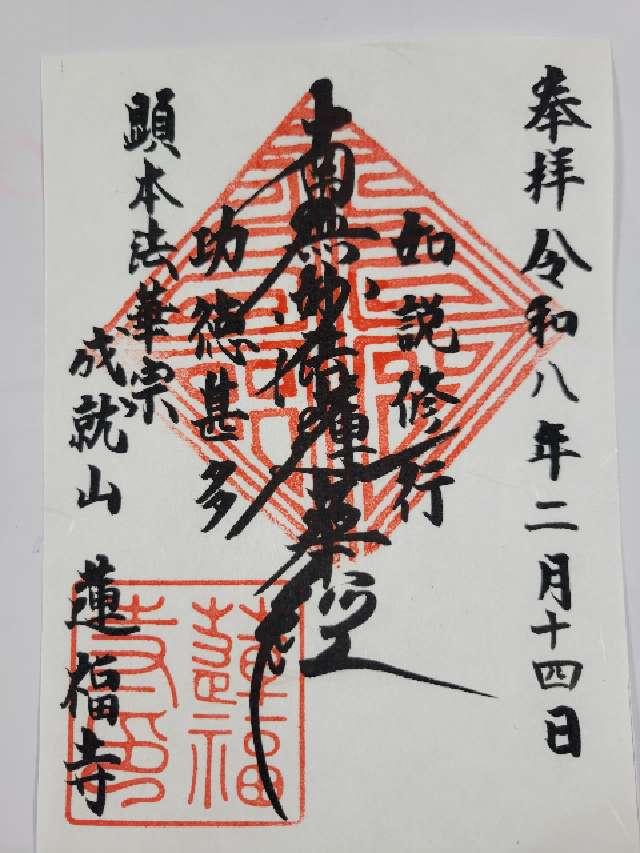 奉拝 令和八年二月十四日
如説修行
南無妙法蓮華経
功徳甚多
顕本法華宗
成就山 蓮福寺